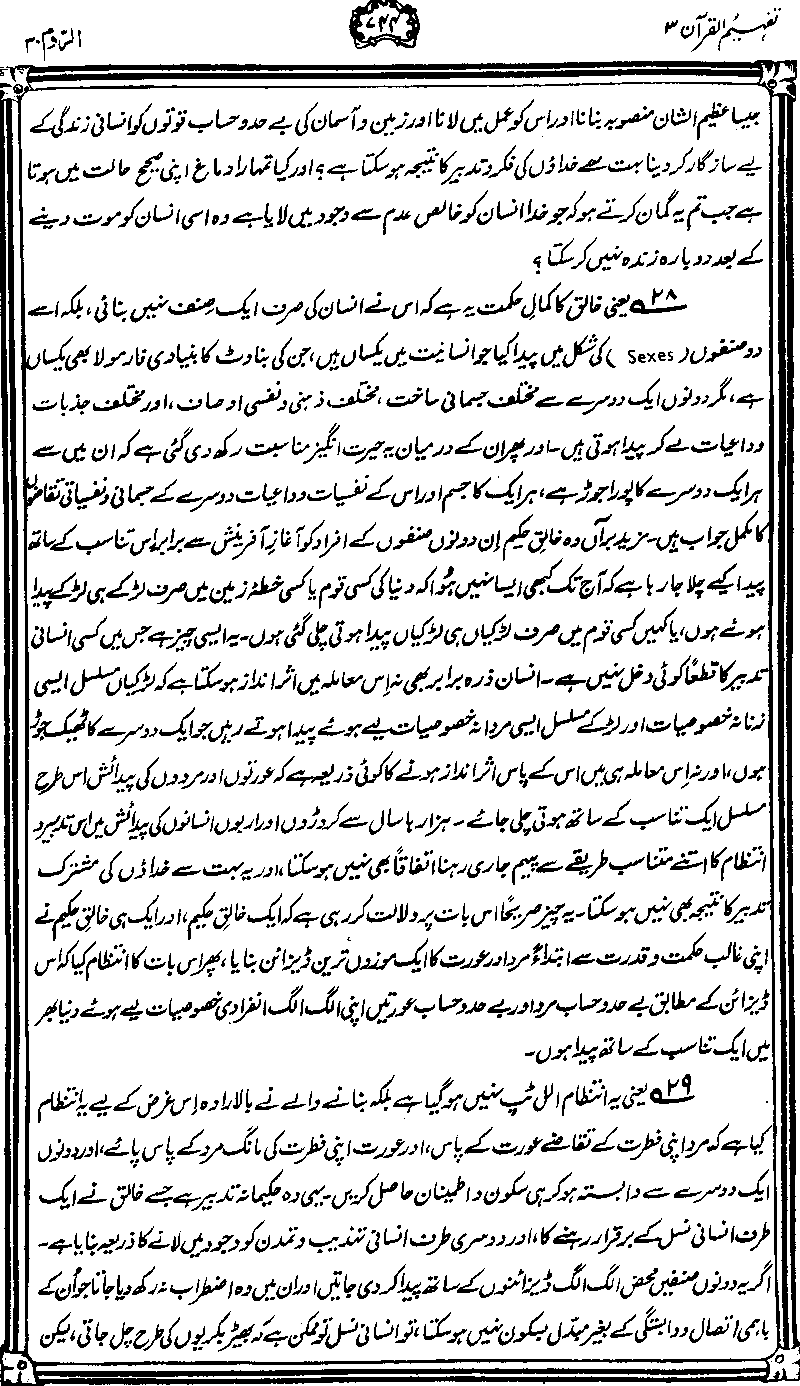 تفہیم القرآن ۳
۷۴۴
الروم ۳۰
جیسا عظیم الشان منصوبہ بنانا اور اس کو عمل میں لانا اور زمین و آسمان کی بے حد و حساب قوتوں کو انسانی زندگی کے
لیے سازگار کر دینا بہت سے خداؤں کی فکر و تدبیر کا نتیجہ ہو سکتا ہے؟ اور کیا تمہارا دماغ اپنی صحیح حالت میں ہوتا
ہے جب تم یہ گمان کرتے ہو کہ جو خدا انسان کو خالص عدم سے وجود میں لایا ہے وہ اسی انسان کو موت دینے
کے بعد دوبارہ زندہ نہیں کر سکتا؟
۲۸ یعنی خالق کا کمالِ حکمت یہ ہے کہ اس نے انسان کی صرف ایک صِنف نہیں بنائی، بلکہ اسے
دو صنفوں (Sexes) کی شکل میں پیدا کیا جو انسانیت میں یکساں ہیں، جن کی بناوٹ کا بنیادی فارمولا بھی یکساں
ہے، مگر دونوں ایک دوسرے سے مختلف جسمانی ساخت، مختلف ذہنی و نفسی اوصاف، اور مختلف جذبات
و داعیات لے کر پیدا ہوتی ہیں۔ اور پھر ان کے درمیان یہ حیرت انگیز مناسبت رکھ دی گئی ہے کہ ان میں سے
ہر ایک دوسرے کا پورا جوڑ ہے، ہر ایک کا جسم اور اس کے نفسیات و داعیات دوسرے کے جسمانی و نفسیاتی تقاضوں
کا مکمل جواب ہیں۔ مزید برآں وہ خالقِ حکیم اِن دونوں صنفوں کے افراد کو آغازِ آفرینش سے برابر اِس تناسب کے ساتھ
پیدا کیے چلا جا رہا ہے کہ آج تک کبھی ایسا نہیں ہُوا کہ دنیا کی کسی قوم یا کسی خطۂ زمین میں صرف لڑکے ہی لڑکے پیدا
ہوئے ہوں، یا کہیں کسی قوم میں صرف لڑکیاں ہی لڑکیاں پیدا ہوتی چلی گئی ہوں۔ یہ ایسی چیز ہے جس میں کسی انسانی
تدبیر کا قطعاً کوئی دخل نہیں ہے۔ انسان ذرہ برابر بھی نہ اِس معاملہ میں اثر انداز ہو سکتا ہے کہ لڑکیاں مسلسل ایسی
زنانہ خصوصیات اور لڑکے مسلسل ایسی مردانہ خصوصیات لیے ہوئے پیدا ہوتے رہیں جو ایک دوسرے کا ٹھیک جوڑ
ہوں، اور نہ اِس معاملہ ہی میں اس کے پاس اثر انداز ہونے کا کوئی ذریعہ ہے کہ عورتوں اور مردوں کی پیدائش اس طرح
مسلسل ایک تناسب کے ساتھ ہوتی چلی جائے۔ ہزارہا سال سے کروڑوں اور اربوں انسانوں کی پیدائش میں اس تدبیر و
انتظام کا اتنے متناسب طریقے سے پیہم جاری رہنا اتفاقاً بھی نہیں ہو سکتا، اور یہ بہت سے خداؤں کی مشترک
تدبیر کا نتیجہ بھی نہیں ہو سکتا۔ یہ چیز صریحًا اس بات پر دلالت کر رہی ہے کہ ایک خالقِ حکیم، اور ایک ہی خالقِ حکیم نے
اپنی غالب حکمت و قدرت سے ابتداءً مرد اور عورت کا ایک موزوں ترین ڈیزائن بنایا، پھر اس بات کا انتظام کیا کہ اس
ڈیزائن کے مطابق بے حد و حساب مرد اور بے حد و حساب عورتیں اپنی الگ الگ انفرادی خصوصیات لیے ہوئے دنیا بھر
میں ایک تناسب کے ساتھ پیدا ہوں۔
۲۹ یعنی یہ انتظام الل ٹپ نہیں ہو گیا ہے بلکہ بنانے والے نے بالارادہ اِس غرض کے لیے یہ انتظام
کیا ہے کہ مرد اپنی فطرت کے تقاضے عورت کے پاس، اور عورت اپنی فطرت کی مانگ مرد کے پاس پائے، اور دونوں
ایک دوسرے سے وابستہ ہو کر ہی سکون و اطمینان حاصل کریں۔ یہی وہ حکیمانہ تدبیر ہے جسے خالق نے ایک
طرف انسانی نسل کے برقرار رہنے کا، اور دوسری طرف انسانی تہذیب و تمدن کو وجود میں لانے کا ذریعہ بنایا ہے۔
اگر یہ دونوں صنفیں محض الگ الگ ڈیزائنوں کے ساتھ پیدا کر دی جاتیں اور ان میں وہ اضطراب نہ رکھ دیا جاتا جو اُن کے
باہمی اتصال و وابستگی کے بغیر مبدّل بسکون نہیں ہو سکتا، تو انسانی نسل تو ممکن ہے کہ بھیڑ بکریوں کی طرح چل جاتی، لیکن